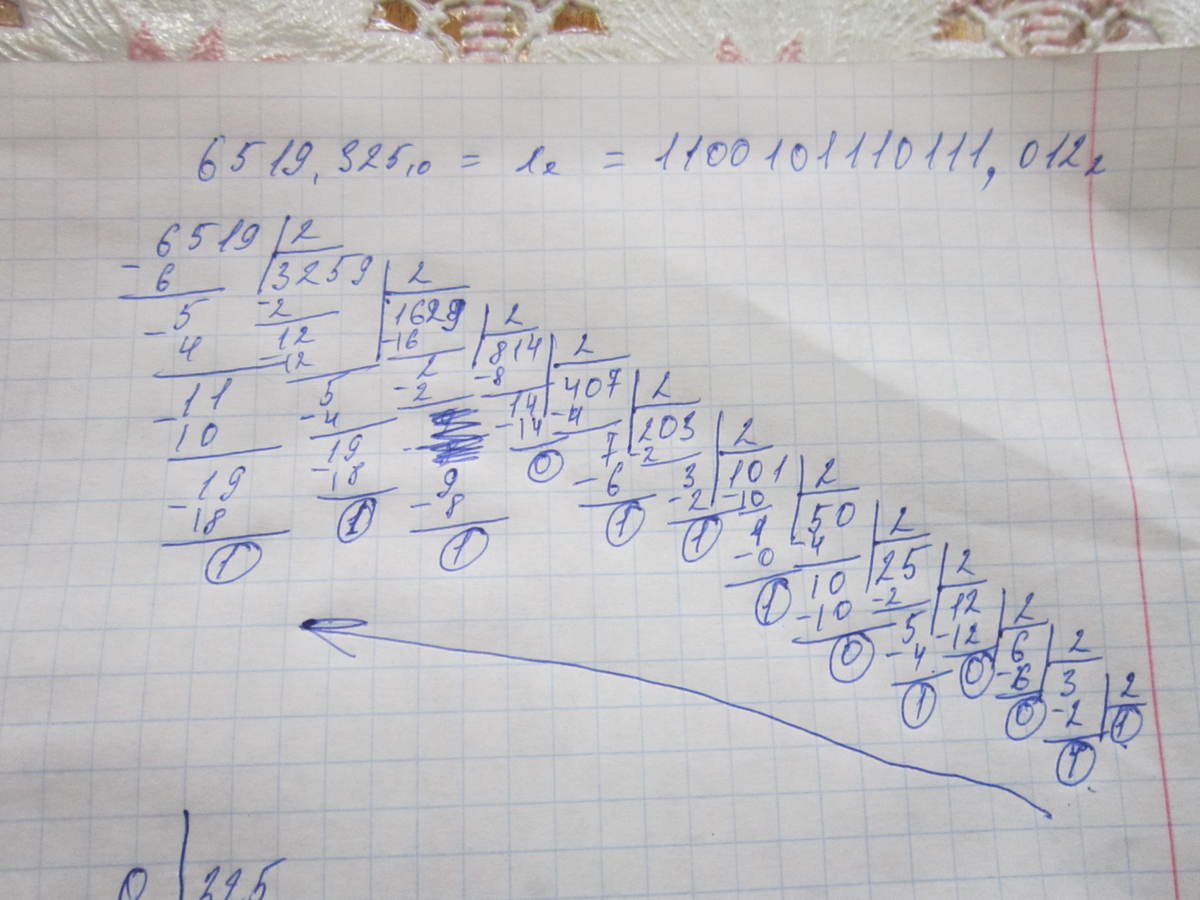 6519,325₁₀ = 1₂ = 1100101110111,012₂
6519 | 2
- 6 | 3259 | 2
5 - 2 | 1629 | 2
- 4 12 - 16 | 814 | 2
- 12 2 - 8 | 407 | 2
11 5 - 2 14 - 4 | 203 | 2
- 10 - 4 - 14 7 - 2 | 101 | 2
19 19 9 0 - 6 3 - 10 | 50 | 2
- 18 - 18 - 8 1 - 2 1 - 4 | 25 | 2
1 1 1 1 - 0 10 - 2 | 12 | 2
1 - 10 5 - 12 | 6 | 2
0 - 4 0 - 6 | 3 | 2
1 0 - 2 | 1
1
0 | 325